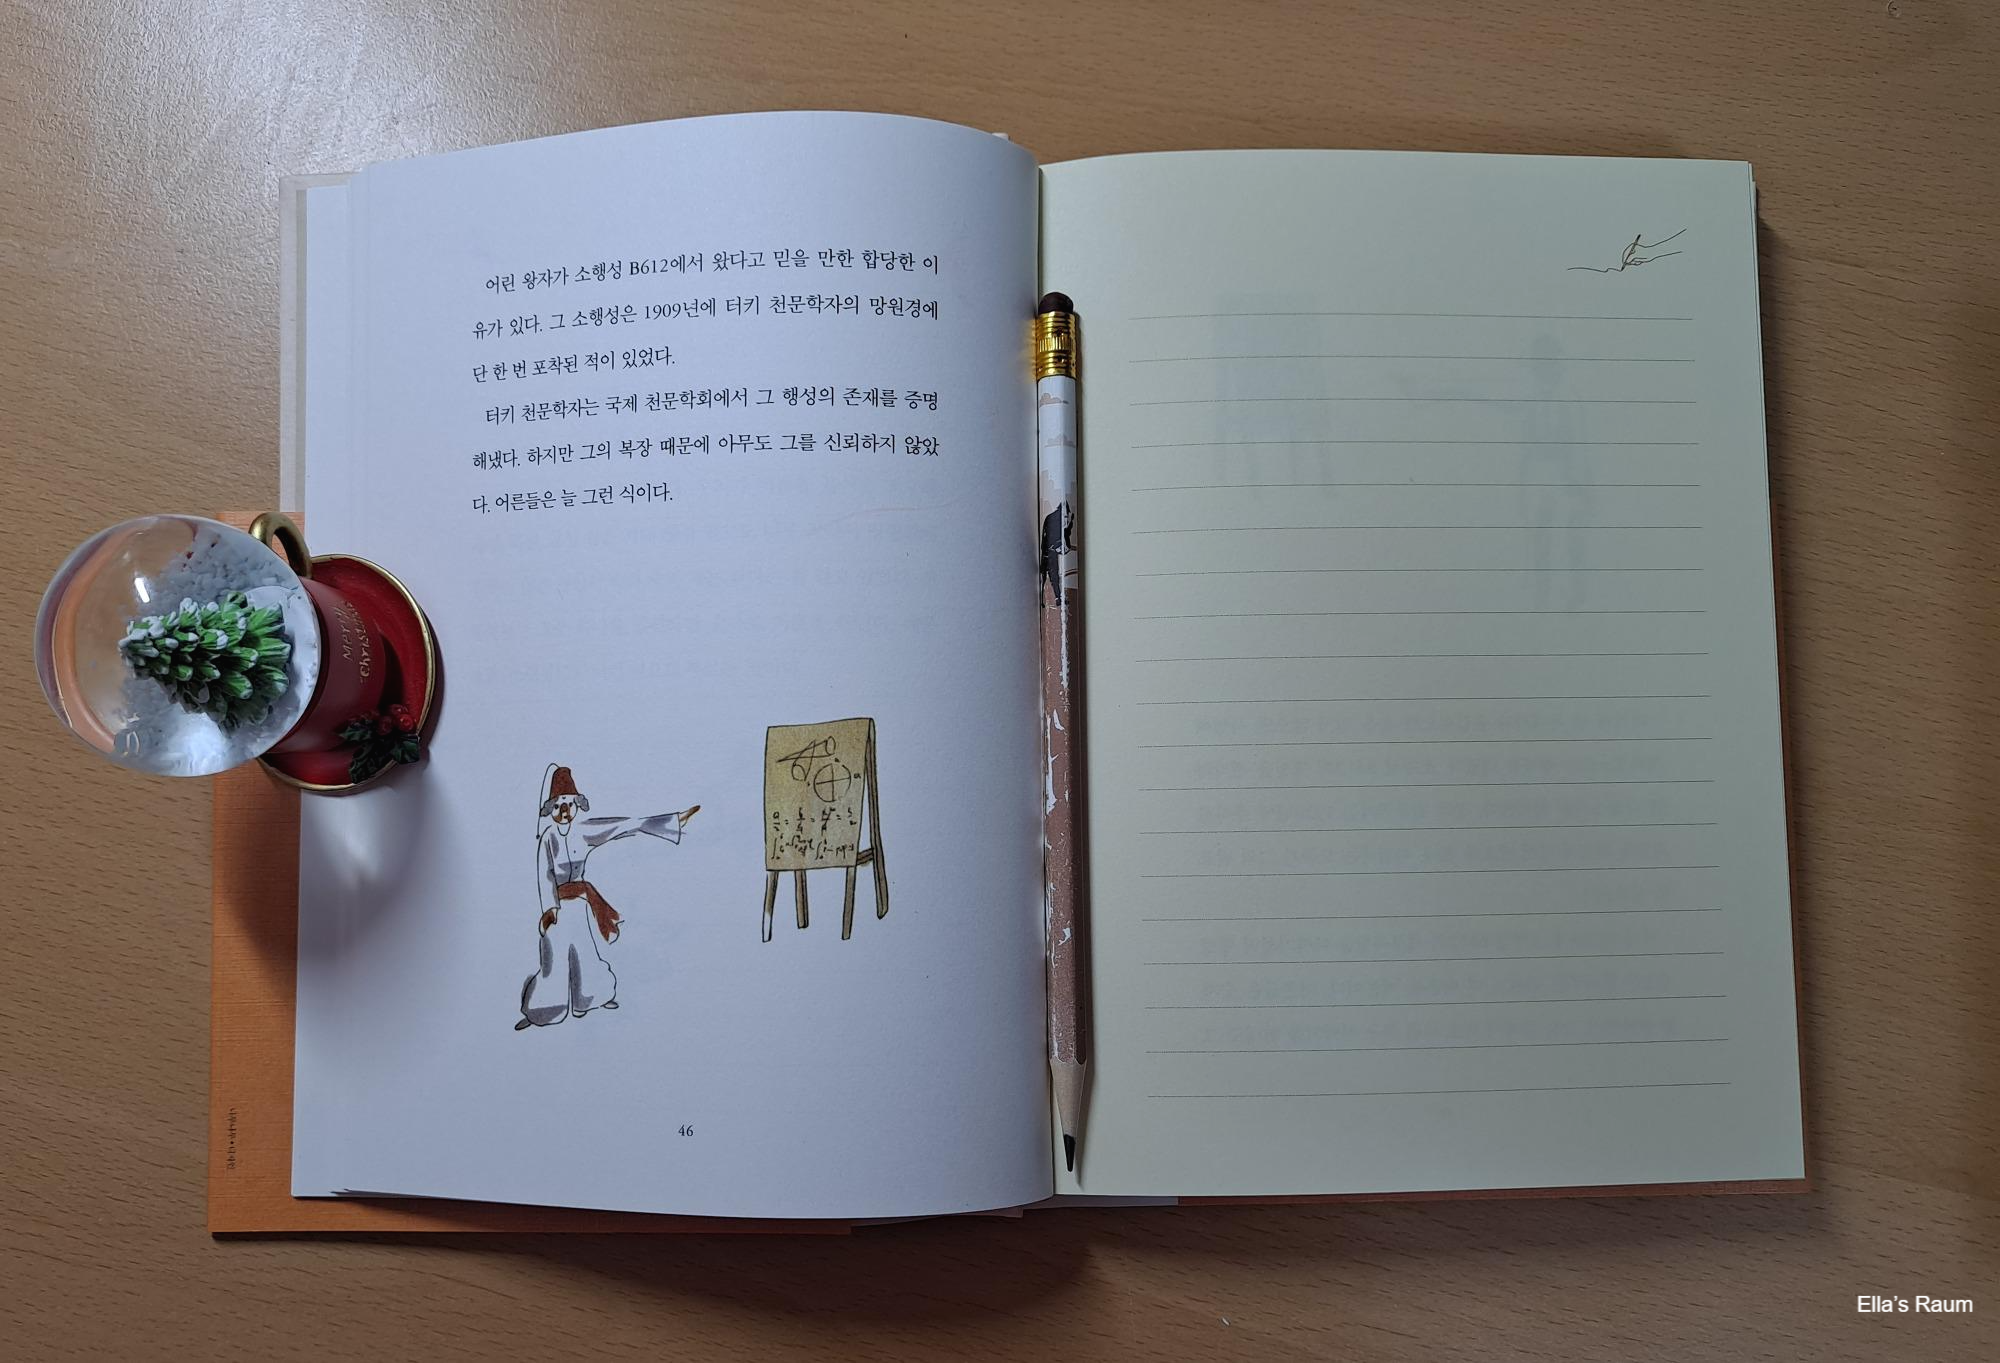 어린 왕자가 소행성 B612에서 왔다고 믿을 만한 합당한 이
유가 있다. 그 소행성은 1909년에 터키 천문학자의 망원경에
단 한 번 포착된 적이 있었다.
터키 천문학자는 국제 천문학회에서 그 행성의 존재를 증명
해냈다. 하지만 그의 복장 때문에 아무도 그를 신뢰하지 않았
다. 어른들은 늘 그런 식이다.
Merry
Christmas
46
Ella's Raum